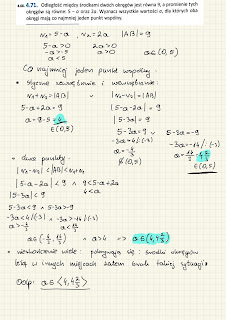 4.71. Odległość między środkami dwóch okręgów jest równa 9, a promienie tych
okręgów są równe 5 – a oraz 2a. Wyznacz wszystkie wartości a, dla których oba
okręgi mają co najmniej jeden punkt wspólny.
r₁ = 5-a , r₂ = 2a |AB| = 9
5-a>0 2a>0
-a>-5 a>0 a∈(0,5)
a<5
Co najmniej jeden punkt wspólny:
• styczne zewnętrznie i wewnętrznie:
r₁+r₂ = |AB| ∨ |r₁-r₂| = |AB|
5-a+2a = 9 |5-a-2a| = 9
a = 9-5 = 4 |5-3a| = 9
∈(0,5) 5-3a = 9 ∨ 5-3a = -9
-3a = 4 /:(-3) -3a = -14 /:(-3)
a = -4/3 a = 14/3
∉(0,5) ∈(0,5)
• dwa punkty:
|r₁-r₂| < |AB| < r₁+r₂
|5-a-2a| < 9 ∧ 9 < 5-a+2a
|5-3a| < 9 4 < a
5-3a < 9 ∧ 5-3a > -9
-3a < 4 /:(-3) ∧ -3a > -14 /:(-3)
a > -4/3 a < 14/3
a∈(-4/3, 14/3) ∧ a>4 ⇒ a∈(4, 4 2/3)
• nieskończenie wiele: pokrywają się: środki okręgów
leżą w innych miejscach zatem brak takiej sytuacji
Odp: a∈⟨4, 4 2/3⟩